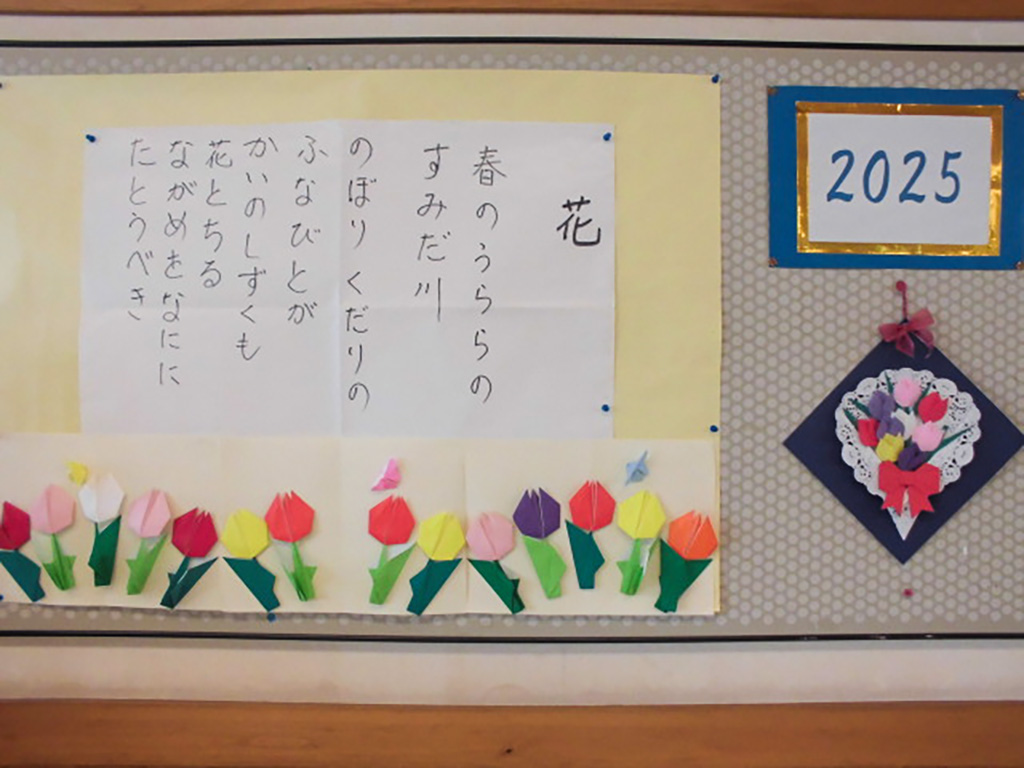 花
春のうららの
すみだ川
のぼりくだりの
ふなびとが
かいのしずくも
花とちる
ながめをなにに
たとうべき
2025